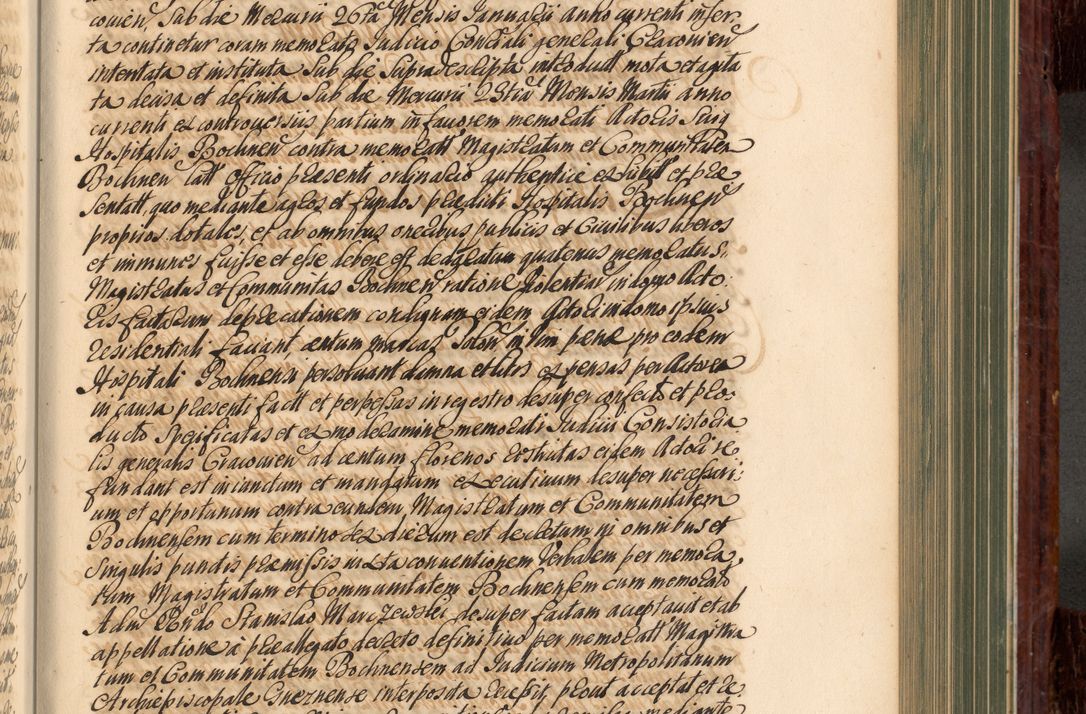 covien, Sub die Mercurii 26ta Mensis Januarii anno currenti infer-
ta continetur coram memorato Judicio Consiali generali Cracovien
intentata et instituta Sub die Supra rescripta introduct mota et agita
ta decisa et definita Sub die Mercurii 23tia Mensis Martii anno
currenti ex controversiis partium in favorem memorati Actoris Suiq
Hospitalis Bochnen contra memoratt Magistratum et Communitatem
Bochnen latt officio praesenti ordinario authentice ex Subitt et prae
Sentatt, quo mediante agros et fundos praedicti Hospitalis Bochnen
proprios dotales, et ab omnibus oneribus publicis et Civilibus liberos
et immunes fuisse et esse debere est declaratum quatenus memoratus
Magistratus et Communitas Bochnen ratione violentiae in domo Acto
ris factarum deprecationem condignam eidem Actori in domo ipsius
residentiali faciant, centum marcas Polon in vim penae pro eodem
Hospitali Bochnensi persolvant damna et litis expensas per Actorem
in causa praesenti factt et perpessas in regestro desuper confecto et pro-
ducto Specificatas et ex moderamine memorati Judicii Consistoria
lis generalis Cracovien ad centum florenos restrictas eidem Actori re
fundant est iniunctum et mandatum executivum desuper necessari
um et opportunum contra eundem Magistratum et Communitatem
Bochnensem cum termino sex dierum est decretum, in omnibus et
Singulis punctis praemissis iuxta conventionem Verbalem per memora
tum Magistratum et Communitatem Bochnensem cum memorato
Adm Rndo Stanislao Marczewski desuper factam acceptavit et ab
appellatione a praeallegato decreto definitivo per memoratt Magistra
tum et Communitatem Bochnensem ad Judicium Metropolitanum
Archiepiscopale Gneznense interposita recessit, prout acceptat et re
mediante